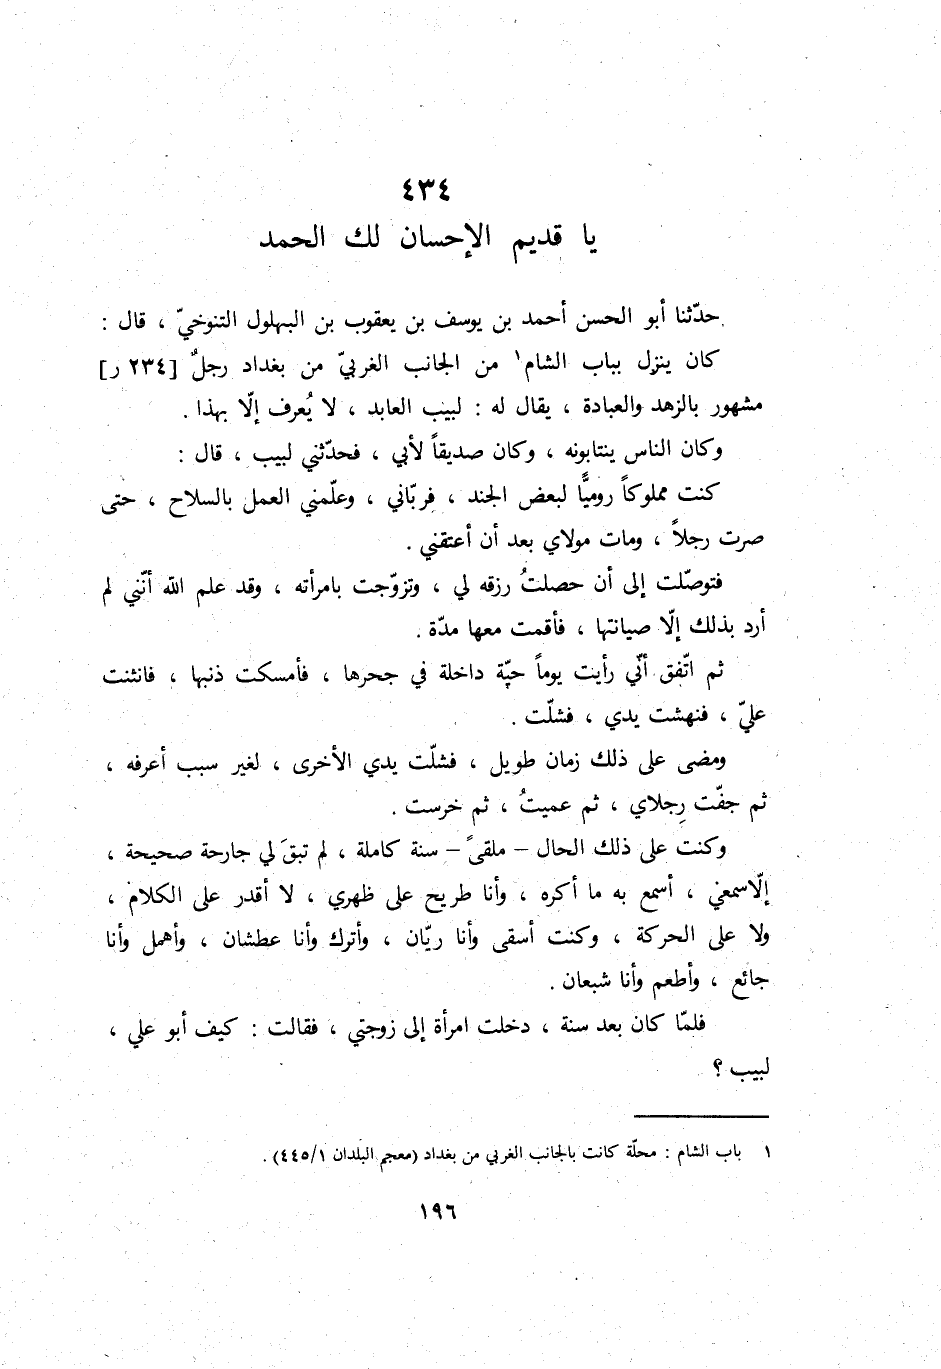 ٤٣٤
يا قديم الإحسان لك الحمد
حدّثنا أبو الحسن أحمد بن يوسف بن يعقوب بن البهلول التنوخيّ ، قال :
كان ينزل بباب الشام١ من الجانب الغربيّ من بغداد رجلٌ [٢٣٤ ر]
مشهور بالزهد والعبادة ، يقال له : لبيب العابد ، لا يُعرف إلّا بهذا .
وكان الناس ينتابونه ، وكان صديقاً لأبي ، فحدّثني لبيب ، قال :
كنت مملوكاً روميًّا لبعض الجند ، فربّاني ، وعلّمني العمل بالسلاح ، حتى
صرت رجلاً ، ومات مولاي بعد أن أعتقني .
فتوصّلت إلى أن حصلتُ رزقه لي ، وتزوّجت بامرأته ، وقد علم الله أنّني لم
أرد بذلك إلّا صيانتها ، فأقمت معها مدّة .
ثم اتّفق أنّي رأيت يوماً حيّة داخلة في جحرها ، فأمسكت ذنبها ، فانثنت
عليّ ، فنهشت يدي ، فشلّت .
ومضى على ذلك زمان طويل ، فشلّت يدي الأخرى ، لغير سبب أعرفه ،
ثم جفّت رِجلاي ، ثم عميتُ ، ثم خرست .
وكنت على ذلك الحال – ملقىً – سنة كاملة ، لم تبقَ لي جارحة صحيحة ،
إلّا سمعي ، أسمع به ما أكره ، وأنا طريح على ظهري ، لا أقدر على الكلام ،
ولا على الحركة ، وكنت أسقى وأنا ريّان ، وأترك وأنا عطشان ، وأهمل وأنا
جائع ، وأطعم وأنا شبعان .
فلمّا كان بعد سنة ، دخلت امرأة إلى زوجتي ، فقالت : كيف أبو علي ،
لبيب ؟
١ باب الشام : محلّة كانت بالجانب الغربي من بغداد (معجم البلدان ٤٤٥/١) .
١٩٦